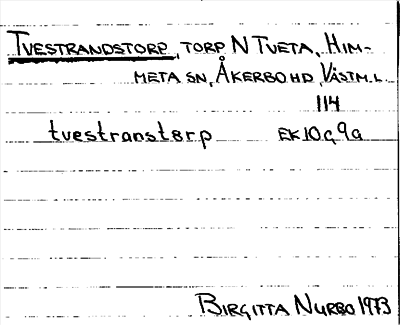 TVESTRANDSTORP, TORP N TVETA, HIM-
META SN, ÅKERBO HD, VÄSTM. L.
114
tvestranstørp EK 10g9a
BIRGITTA NURBO 1973